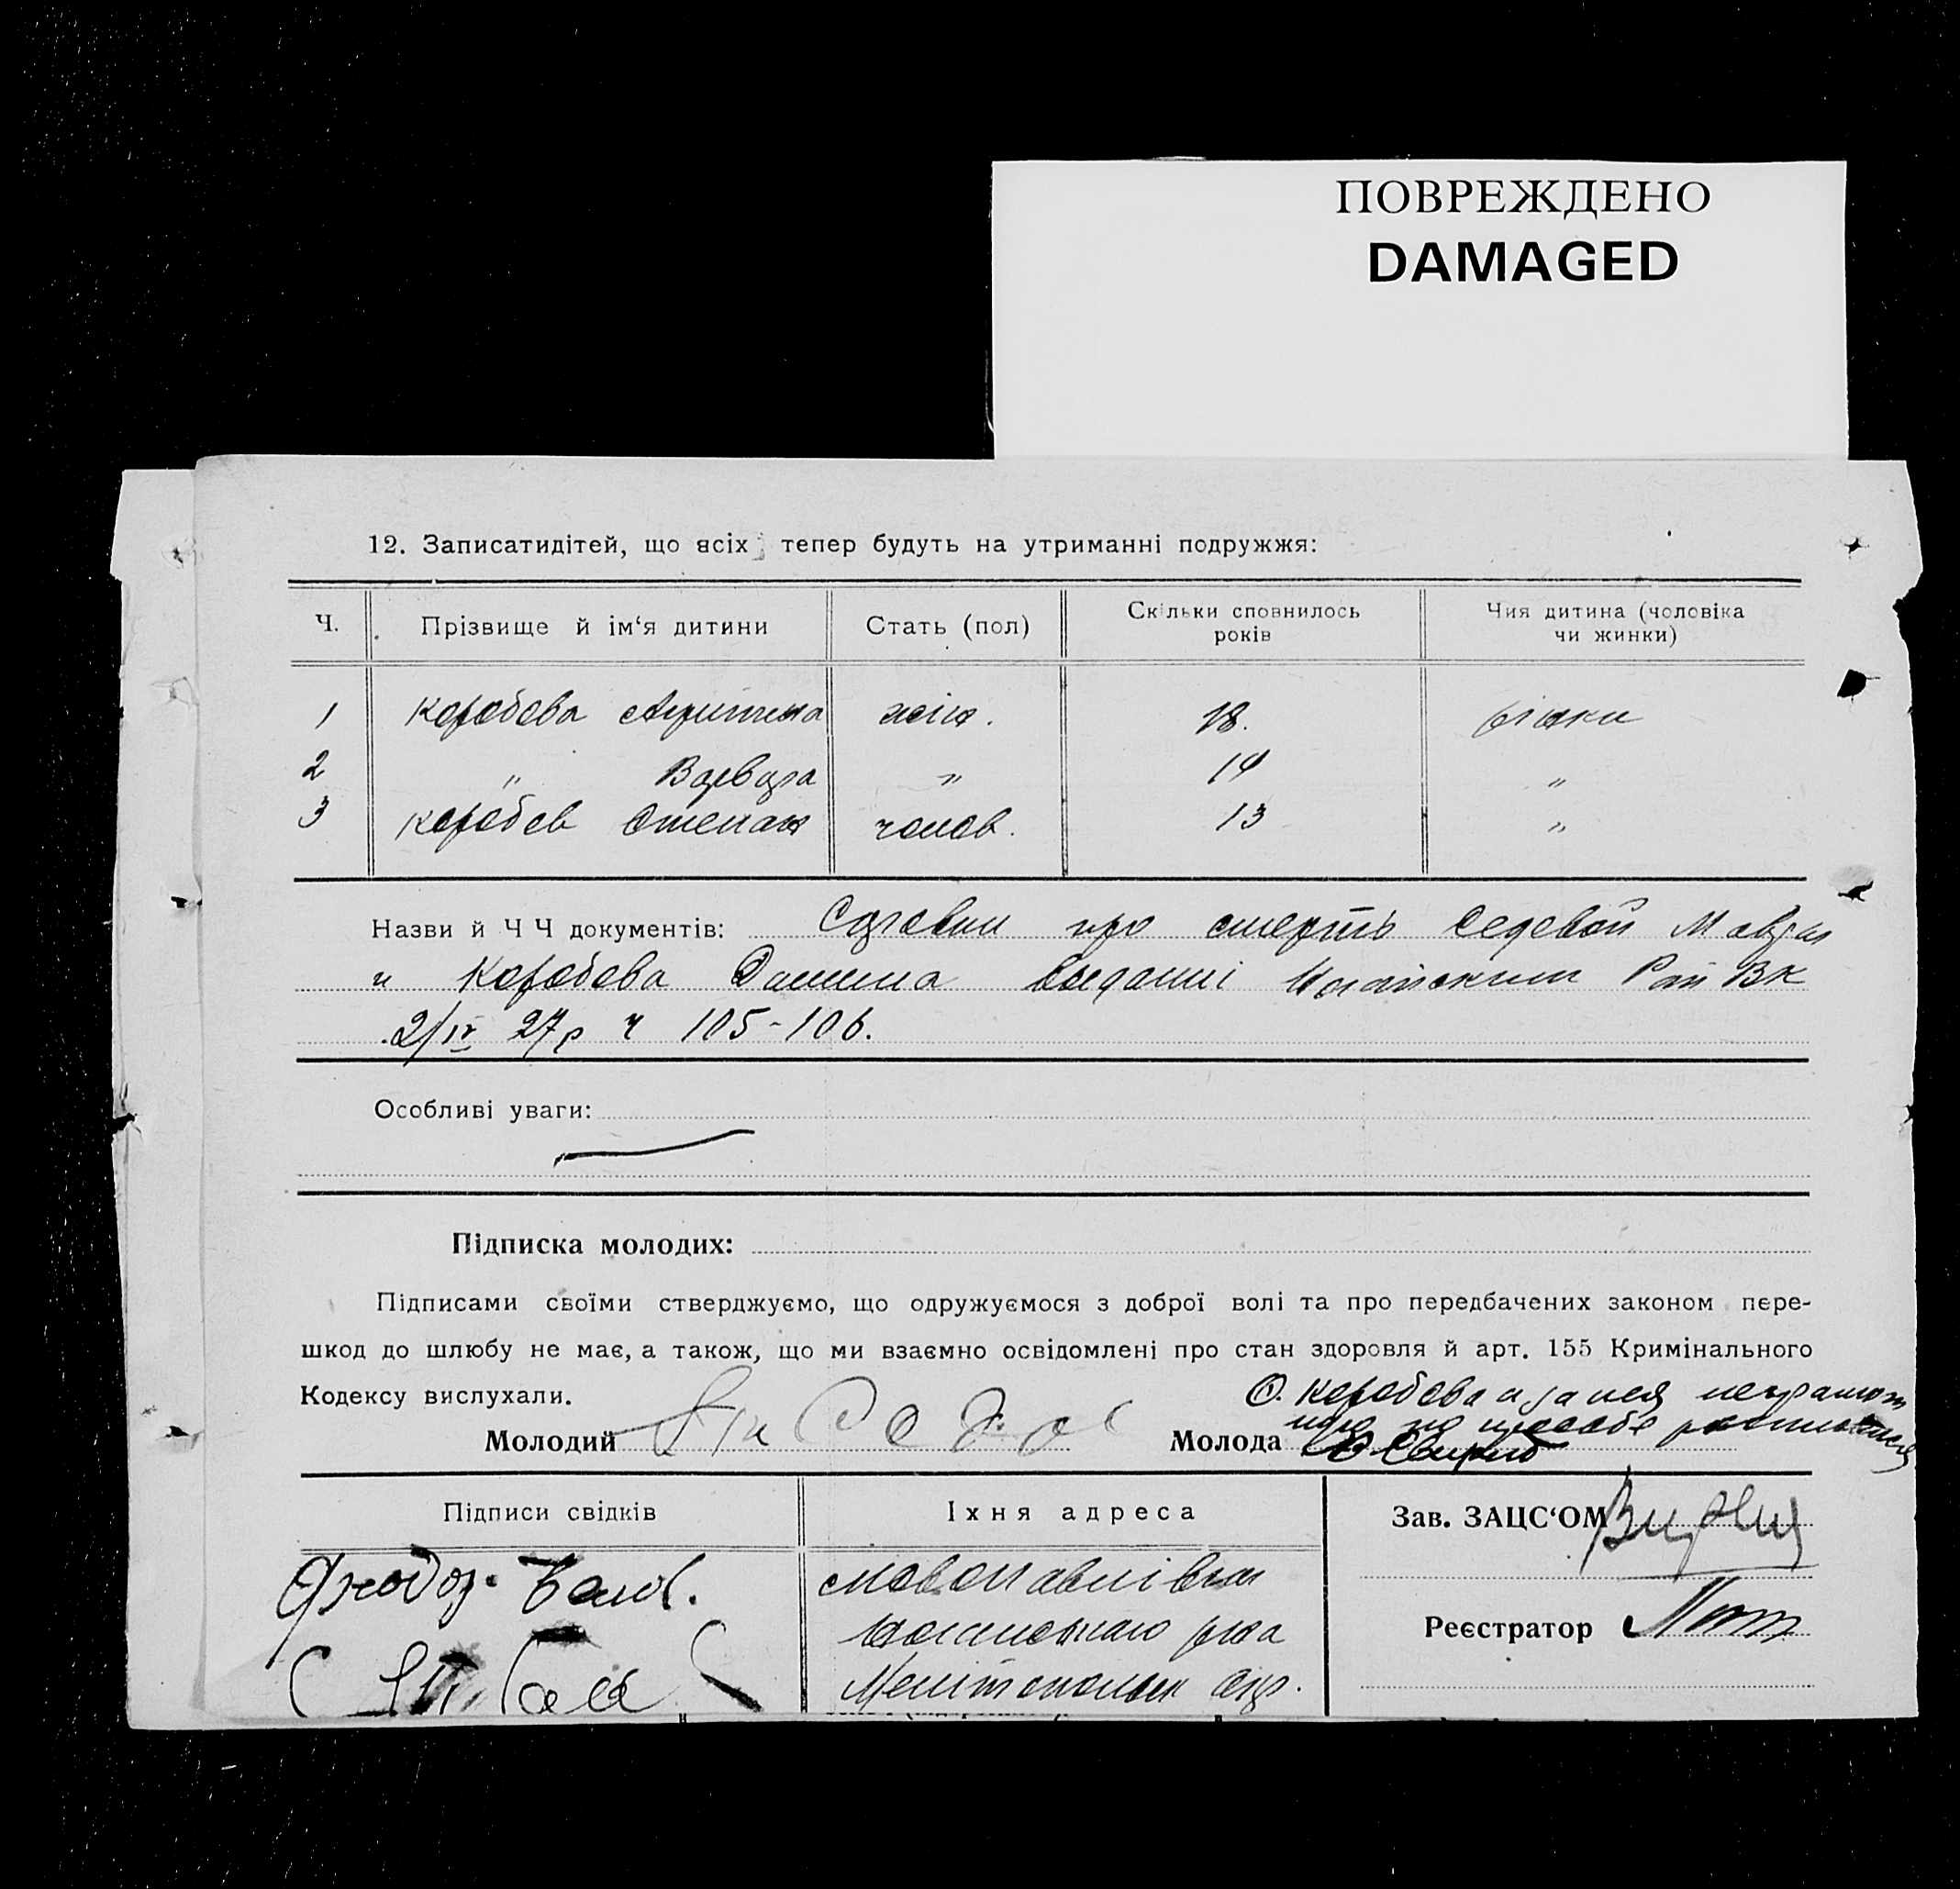 ПОВРЕЖДЕНО
DAMAGED
12. Записатидітей, що всіх тепер будуть на утриманні подружжя:
Ч. Прізвище й ім‘я дитини Стать (пол) Скільки сповнилось років Чия дитина (чоловіка чи жинки)
1 Коробова жін. 18.
2 " Варвара " 14 "
3 Коробов Степан чолов. 13 "
Назви й Ч Ч документів: про смерть Седевой Мавры
и Коробова Данила выданні Ногайским Рай ВК
2/IV 27 р ч 105-106.
Особливі уваги:
Підписка молодих:
Підписами своїми стверджуємо, що одружуємося з доброї волі та про передбачених законом пере-
шкод до шлюбу не має, а також, що ми взаємно освідомлені про стан здоровля й арт. 155 Кримінального
Кодексу вислухали.
О. Коробова а за нея неграмот
ную по прозьбе
Молодий Молода
Підписи свідків Їхня адреса Зав. ЗАЦС‘ОМ
Новопавлівка
Реєстратор
рна
Мелітопольск окр.